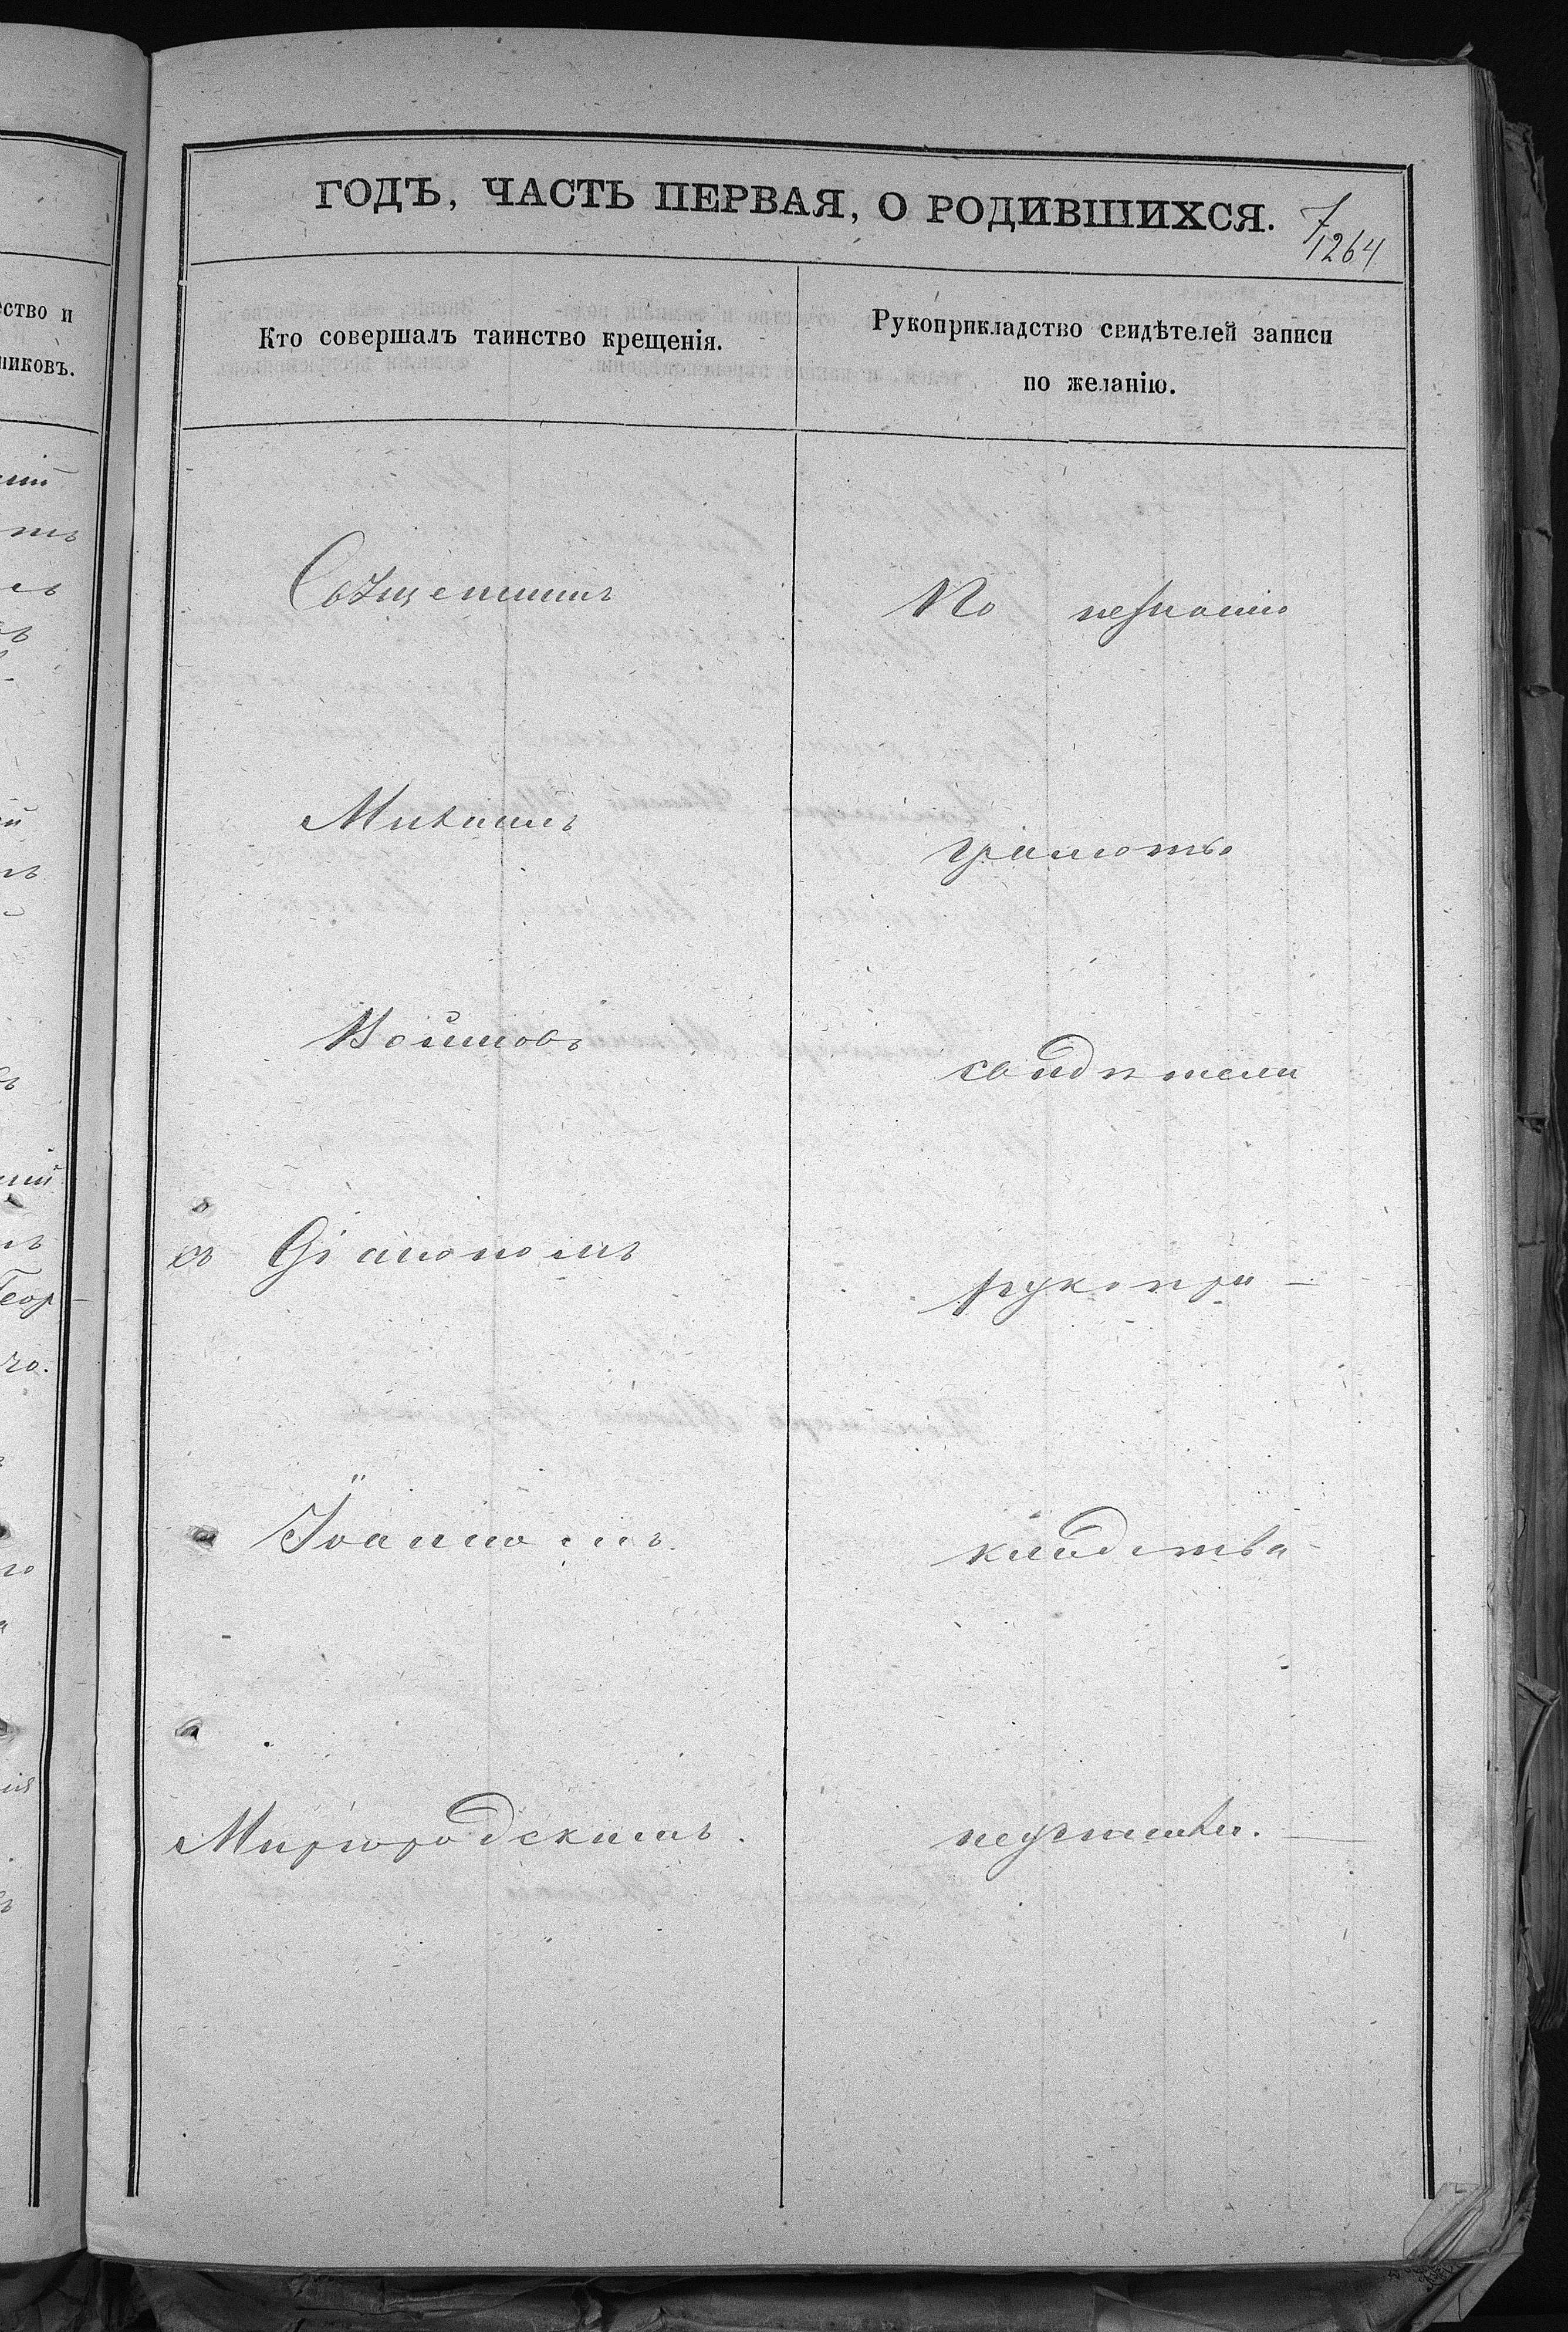 ГОДЪ, ЧАСТЬ ПЕРВАЯ, О РОДИВШИХСЯ.
7
1264
ство и
никовъ.
Кто совершалъ таинство крещенія.
Рукоприкладство свидѣтелей записи
по желанію.
Священникъ
Михаилъ
Войновъ
съ Діакономъ
Іоанномъ
Миргородскимъ.
По незнанію
грамоты
свидѣтели
рукопри-
кладства
неучинили.